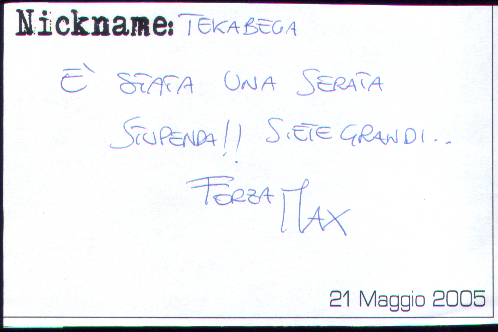 Nickname: TEKABEGA
E' STATA UNA SERATA
STUPENDA!! SIETE GRANDI...
FORZA MAX
21 Maggio 2005